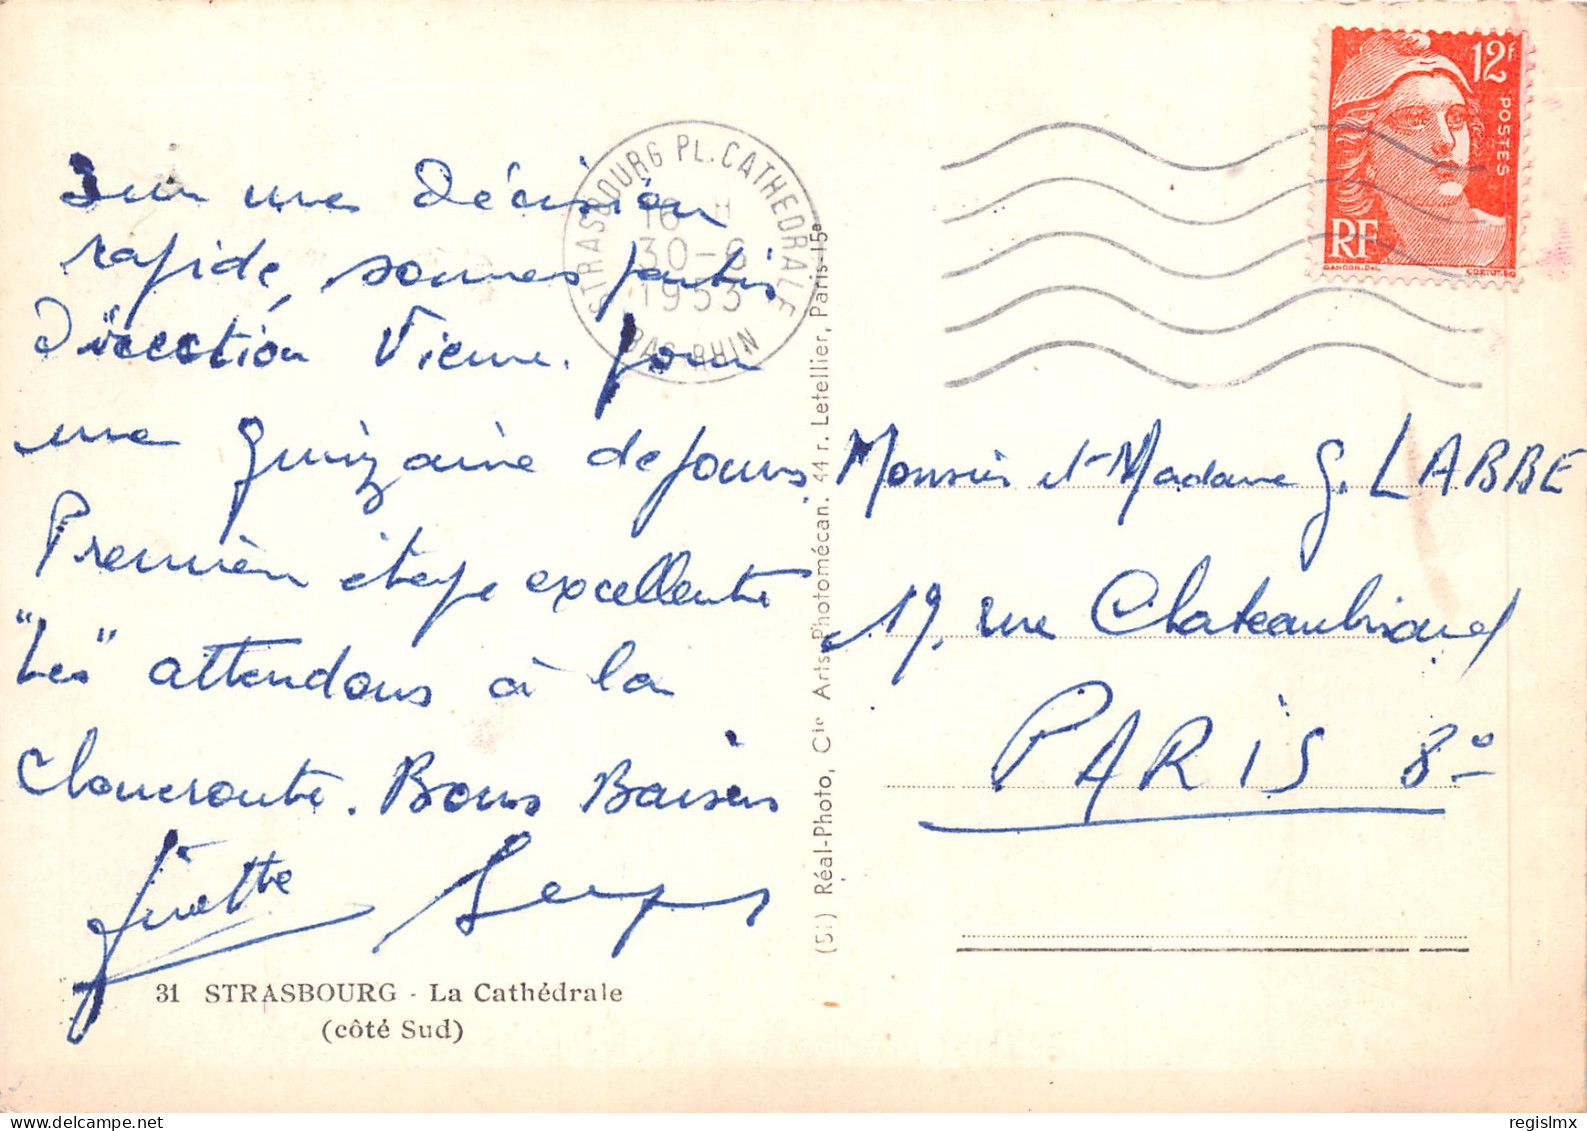 Sur une décision
rapide, sommes partis
Direction Vienne. Pour
une quinzaine de jours.
Première étape excellente
"Les" attendons à la
choucroute. Bons Baisers
Ginette
31 STRASBOURG - La Cathédrale
(côté Sud)
STRASBOURG PL. CATHEDRALE
16 H
30-6
1953
BAS-RHIN
(51) Réal-Photo, Cie Arts Photomécan. 44 r. Letellier, Paris-15e
12F
POSTES
RF
GANDON-DEL.
CORTOT.SC
Monsieur et Madame G. LABBE
19, rue Chateaubriand
PARIS 8e
regislmx